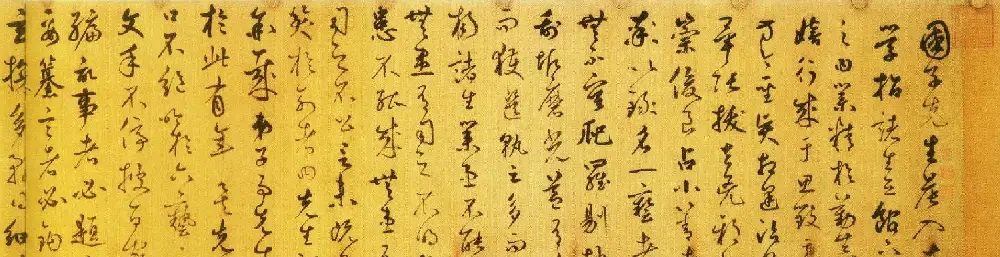 國子先生晨入太
學招諸生立館下
之曰業精於勤荒
嬉行成于思毀于
方今聖賢相逢治
畢張拔去兇邪
崇俊良占小善者
率以錄名一藝者
無不庸爬羅剔抉
刮垢磨光蓋有
而獲選孰云多而
揚諸生業患不能
無患有司之不明
患不能成無患
司之不公言未既
笑於列者曰先生
余哉弟子事先生
於此有年矣先
口不絕吟於六藝
文手不停披百家
編記事者必題
要纂言者必鉤
玄探多務得細